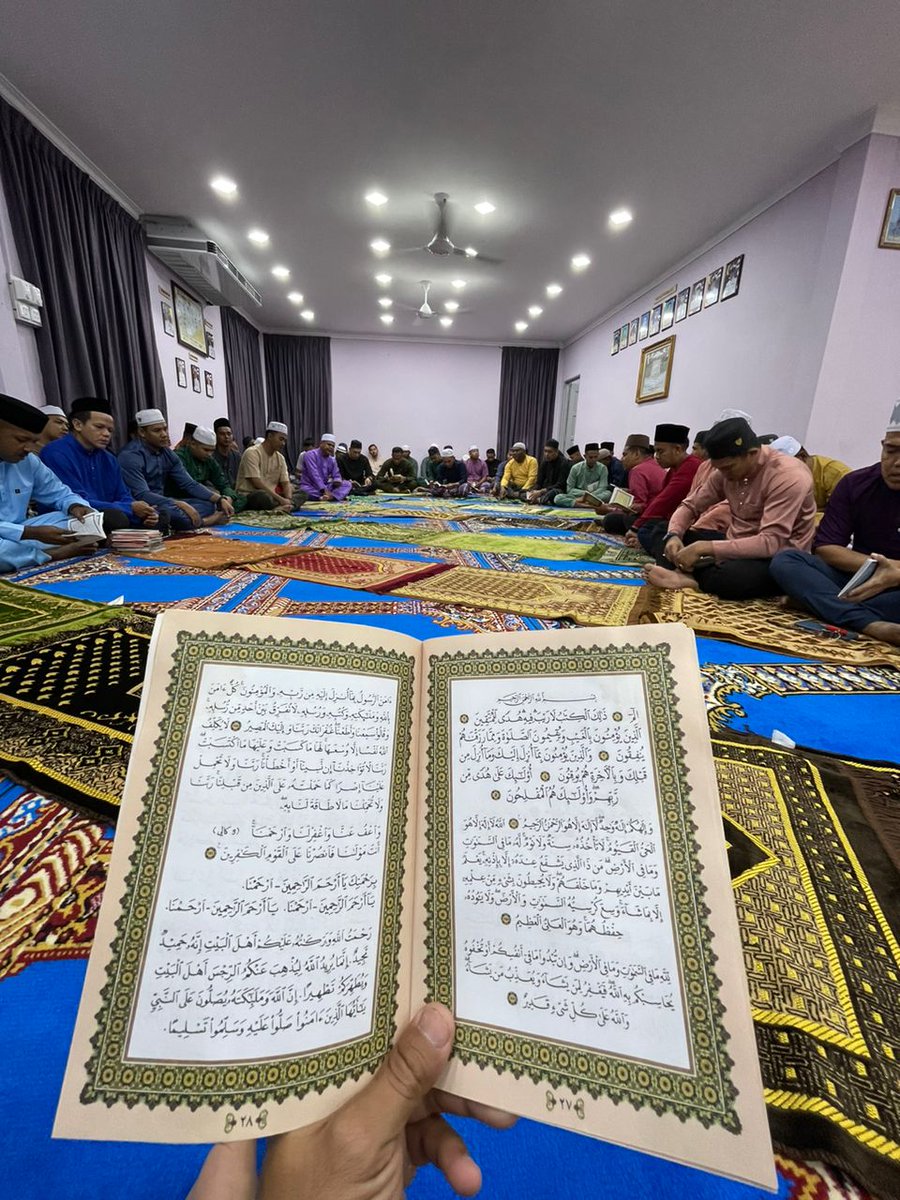 بِسْمِ اللَّهِ الرَّحْمَٰنِ الرَّحِيمِ
الٓمٓ ۞ ذَٰلِكَ الْكِتَٰبُ لَا رَيْبَ فِيهِ هُدًى لِّلْمُتَّقِينَ ۞
الَّذِينَ يُؤْمِنُونَ بِالْغَيْبِ وَيُقِيمُونَ الصَّلَوٰةَ وَمِمَّا رَزَقْنَٰهُمْ
يُنفِقُونَ ۞ وَالَّذِينَ يُؤْمِنُونَ بِمَا أُنزِلَ إِلَيْكَ وَمَا أُنزِلَ مِن
قَبْلِكَ وَبِالْآخِرَةِ هُمْ يُوقِنُونَ ۞ أُولَٰئِكَ عَلَىٰ هُدًى مِّن
رَّبِّهِمْ وَأُولَٰئِكَ هُمُ الْمُفْلِحُونَ ۞
وَإِلَٰهُكُمْ إِلَٰهٌ وَٰحِدٌ لَّا إِلَٰهَ إِلَّا هُوَ الرَّحْمَٰنُ الرَّحِيمُ ۞ اللَّهُ لَا إِلَٰهَ إِلَّا هُوَ
الْحَيُّ الْقَيُّومُ لَا تَأْخُذُهُ سِنَةٌ وَلَا نَوْمٌ لَّهُ مَا فِي السَّمَٰوَٰتِ
وَمَا فِي الْأَرْضِ مَن ذَا الَّذِي يَشْفَعُ عِندَهُ إِلَّا بِإِذْنِهِ يَعْلَمُ
مَا بَيْنَ أَيْدِيهِمْ وَمَا خَلْفَهُمْ وَلَا يُحِيطُونَ بِشَيْءٍ مِّنْ عِلْمِهِ
إِلَّا بِمَا شَاءَ وَسِعَ كُرْسِيُّهُ السَّمَٰوَٰتِ وَالْأَرْضَ وَلَا يَئُودُهُ
حِفْظُهُمَا وَهُوَ الْعَلِيُّ الْعَظِيمُ ۞
لِلَّهِ مَا فِي السَّمَٰوَٰتِ وَمَا فِي الْأَرْضِ وَإِن تُبْدُوا مَا فِي أَنفُسِكُمْ أَوْ تُخْفُوهُ
يُحَاسِبْكُم بِهِ اللَّهُ فَيَغْفِرُ لِمَن يَشَاءُ وَيُعَذِّبُ مَن يَشَاءُ
وَاللَّهُ عَلَىٰ كُلِّ شَيْءٍ قَدِيرٌ ۞
٢٧
ءَامَنَ الرَّسُولُ بِمَا أُنزِلَ إِلَيْهِ مِن رَّبِّهِ وَالْمُؤْمِنُونَ كُلٌّ ءَامَنَ
بِاللَّهِ وَمَلَٰئِكَتِهِ وَكُتُبِهِ وَرُسُلِهِ لَا نُفَرِّقُ بَيْنَ أَحَدٍ مِّن رُّسُلِهِ
وَقَالُوا سَمِعْنَا وَأَطَعْنَا غُفْرَانَكَ رَبَّنَا وَإِلَيْكَ الْمَصِيرُ ۞ لَا يُكَلِّفُ
اللَّهُ نَفْسًا إِلَّا وُسْعَهَا لَهَا مَا كَسَبَتْ وَعَلَيْهَا مَا اكْتَسَبَتْ
رَبَّنَا لَا تُؤَاخِذْنَا إِن نَّسِينَا أَوْ أَخْطَأْنَا رَبَّنَا وَلَا تَحْمِلْ
عَلَيْنَا إِصْرًا كَمَا حَمَلْتَهُ عَلَى الَّذِينَ مِن قَبْلِنَا رَبَّنَا
وَلَا تُحَمِّلْنَا مَا لَا طَاقَةَ لَنَا بِهِ
وَاعْفُ عَنَّا وَاغْفِرْ لَنَا وَارْحَمْنَا (٧ كالي)
أَنتَ مَوْلَٰنَا فَانصُرْنَا عَلَى الْقَوْمِ الْكَٰفِرِينَ ۞
بِرَحْمَتِكَ يَا أَرْحَمَ الرَّاحِمِينَ - ارْحَمْنَا.
يَا أَرْحَمَ الرَّاحِمِينَ - ارْحَمْنَا. يَا أَرْحَمَ الرَّاحِمِينَ - ارْحَمْنَا.
رَحْمَتُ اللَّهِ وَبَرَكَٰتُهُ عَلَيْكُمْ أَهْلَ الْبَيْتِ إِنَّهُ حَمِيدٌ
مَّجِيدٌ. إِنَّمَا يُرِيدُ اللَّهُ لِيُذْهِبَ عَنكُمُ الرِّجْسَ أَهْلَ الْبَيْتِ
وَيُطَهِّرَكُمْ تَطْهِيرًا. إِنَّ اللَّهَ وَمَلَٰئِكَتَهُ يُصَلُّونَ عَلَى النَّبِيِّ
يَٰأَيُّهَا الَّذِينَ ءَامَنُوا صَلُّوا عَلَيْهِ وَسَلِّمُوا تَسْلِيمًا.
٢٨